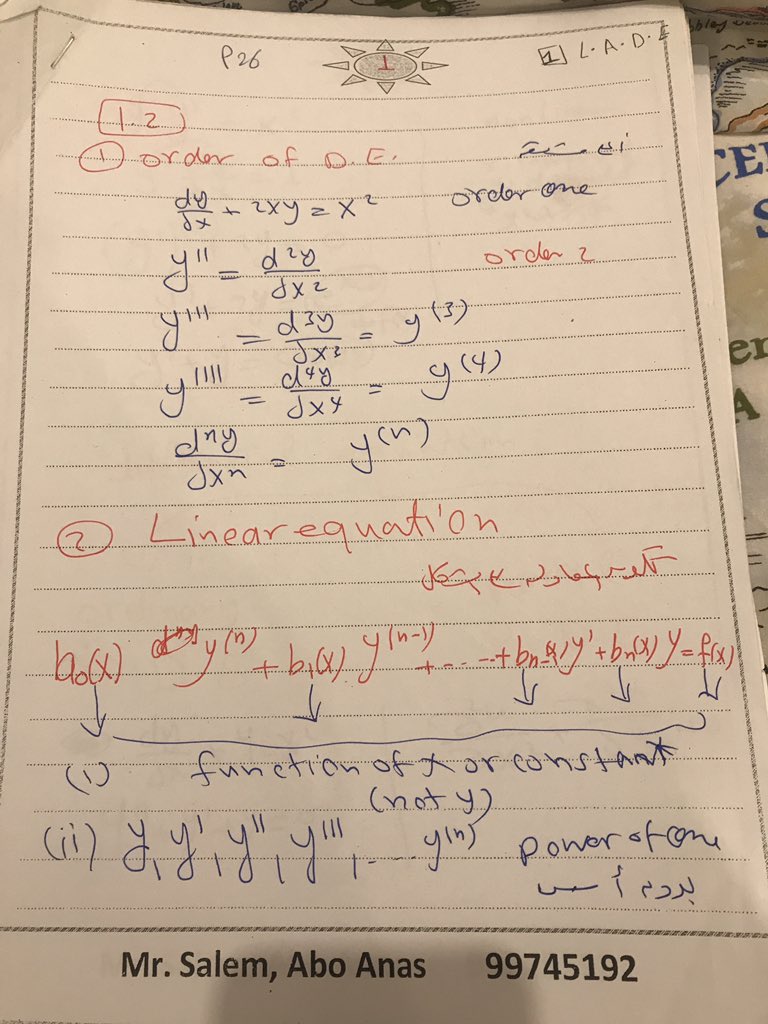 P26
1
1 L.A.D.E
1.2
① order of D.E.
dy/dx + 2xy = x² order one
y'' = d²y/dx² order 2
y''' = d³y/dx³ = y⁽³⁾
y'''' = d⁴y/dx⁴ = y⁽⁴⁾
dⁿy/dxⁿ = y⁽ⁿ⁾
② Linear equation
b₀(x) y⁽ⁿ⁾ + b₁(x) y⁽ⁿ⁻¹⁾ + ---- + bₙ₋₁(x) y' + bₙ(x) y = f(x)
(i) function of x or constant
(not y)
(ii) y, y', y'', y''', ---- y⁽ⁿ⁾ power of one
Mr. Salem, Abo Anas 99745192